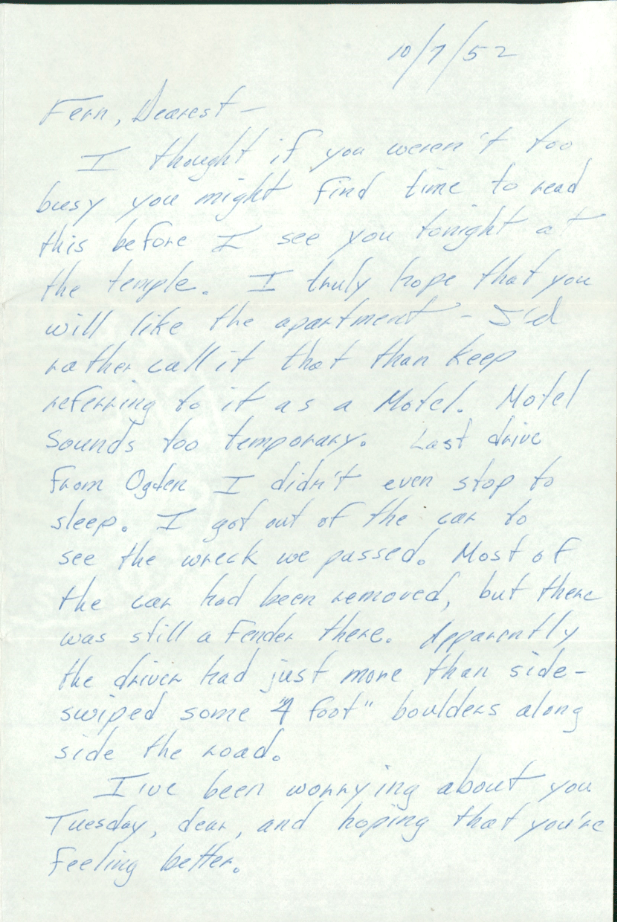 10/7/52
Fern, Dearest —
I thought if you weren't too
busy you might find time to read
this before I see you tonight at
the temple. I truly hope that you
will like the apartment — I'd
rather call it that than keep
referring to it as a Motel. Motel
sounds too temporary. Last drive
from Ogden I didn't even stop to
sleep. I got out of the car to
see the wreck we passed. Most of
the car had been removed, but there
was still a fender there. Apparently
the driver had just more than side-
swiped some "4 foot" boulders along
side the road.
I've been worrying about you
Tuesday, dear, and hoping that you're
feeling better.